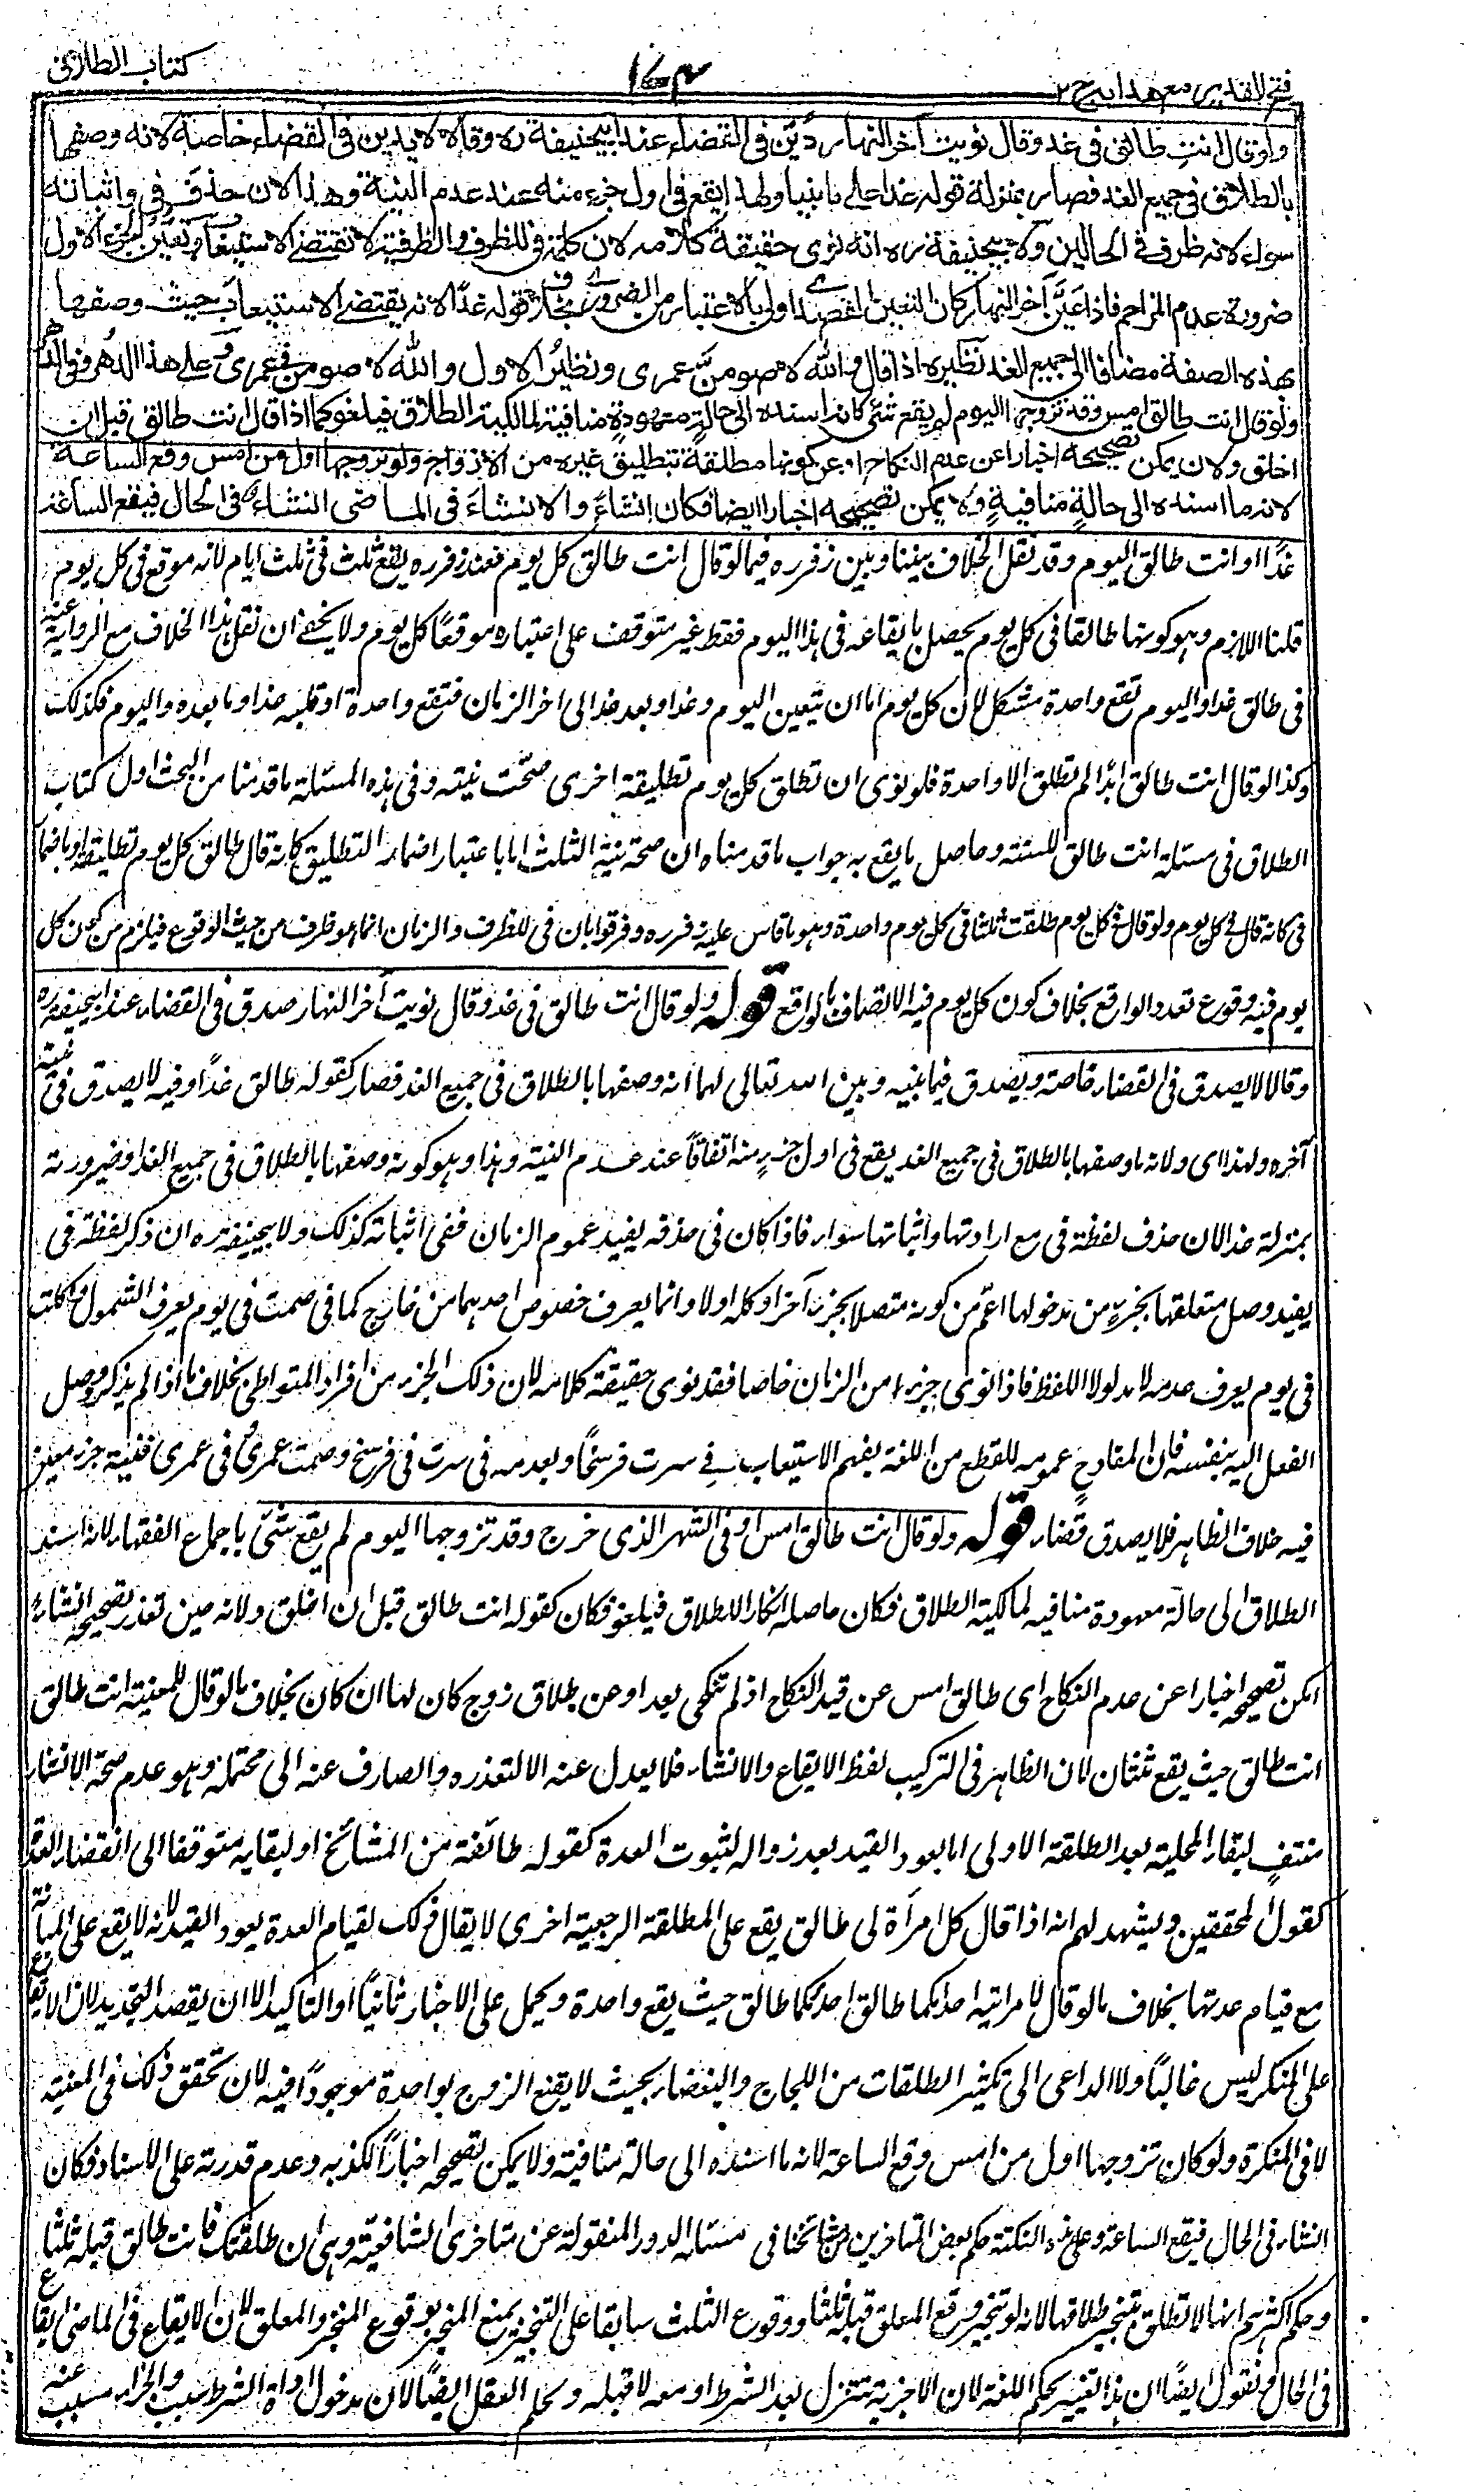 فتح القدير مع هداية ج ٢
١٧٣
كتاب الطلاق
ولو قال انت طالق في غد وقال نويت آخر النهار دُيِّن في القضاء عند ابيحنيفة ره وقالا لا يدين في القضاء خاصة لانه وصفها
بالطلاق في جميع الغد فصار بمنزلة قوله غدا على ما بينا ولهذا يقع في اول جزء منه عند عدم النية وهذا لان حذف في واثباته
سواء لانه ظرف في الحالين ولابيحنيفة ره انه نوى حقيقة كلامه لان كلمة في للظرف والظرفية لا تقتضي الاستيعاب وتعين الجزء الاول
ضرورة عدم المزاحم فاذا عَيَّن آخر النهار كان التعيين القصدي اولى بالاعتبار من الضروري بخلاف قوله غدًا لانه يقتضي الاستيعاب حيث وصفها
بهذه الصفة مضافا الى جميع الغد نظيره اذا قال والله لاصومن عمري ونظير الاول والله لاصومن في عمري وعلى هذا الدهر وفي الدهر
ولو قال انت طالق امس وقد تزوجها اليوم لم يقع شئ لانه اسنده الى حالةٍ معهودةٍ منافية لمالكية الطلاق فيلغو كما اذا قال انت طالق قبل ان
اخلق ولانه يمكن تصحيحه اخبارا عن عدم النكاح او عن كونها مطلقة بتطليق غيره من الازواج ولو تزوجها اول من امس وقع الساعة
لانه ما اسنده الى حالةٍ منافيةٍ ولا يمكن تصحيحه اخبارا ايضا فكان إنشاءً والانشاءُ في الماضي انشاء في الحال فيقع الساعة
غدًا او انت طالق اليوم وقد نقل الخلاف بيننا وبين زفر ره فيما لو قال انت طالق كل يوم فعند زفر ره يقع ثلث في ثلث ايام لانه موقع في كل يوم
قلنا اللازم وهو كونها طالقا في كل يوم يحصل بايقاعه في هذا اليوم فقط غير متوقف على اعتباره موقعًا كل يوم ولا يخفى ان نقل هذا الخلاف مع الرواية عنه
في طالق غدا واليوم تقع واحدة مشكل لان كل يوم اما ان تتعين اليوم وغدا وبعد غد الى اخر الزمان فتقع واحدة او قلبه غدا وما بعده واليوم فكذلك
وكذا لو قال انت طالق ابدًا لم تطلق الا واحدة فلو نوى ان تطلق كل يوم تطليقة اخرى صحّت نيته وفي هذه المسئلة ما قدمنا من البحث اول كتاب
الطلاق في مسئلة انت طالق للسنة وحاصل ما يقع به جواب ما قدمناه ان صحة نية الثلث اما باعتبار اضمار التطليق كانه قال طالق كل يوم تطليقة او باضمار
في كانه قال في كل يوم ولو قال في كل يوم طلقت ثلثا في كل يوم واحدة وهو ما قاس عليه زفر ره وفرقوا بان في للظرف والزمان انما هو ظرف من حيث الوقوع فيلزم من كون كل
يوم فيه وقوع تعدد الواقع بخلاف كون كل يوم فيه الاتصاف بالواقع قوله ولو قال انت طالق في غد وقال نويت آخر النهار صدق في القضاء عند ابيحنيفة ره
وقالا لا يصدق في القضاء خاصة ويصدق فيما بينه وبين الله تعالى لهما انه وصفها بالطلاق في جميع الغد فصار كقوله طالق غدًا وفيه لا يصدق في نية
آخره ولهذا اى ولانه وصفها بالطلاق في جميع الغد يقع في اول جزء منه اتفاقًا عند عدم النية وهذا وهو كونه وصفها بالطلاق في جميع الغد وضرورته
بمنزلة غدا لان حذف لفظة في مع ارادتها واثباتها سواء فاذا كان في حذفه يفيد عموم الزمان ففي اثباته كذلك ولابيحنيفة ره ان ذكر لفظة في
يفيد وصل متعلقها بجزء من مدخولها اعم من كونه متصلا بجزء آخر او كله اولا وانما يعرف خصوص احدهما من خارج كما في صمت في يوم يعرف الشمول واكلت
في يوم يعرف عدمه لا مدلولا اللفظ فاذا نوى جزءا من الزمان خاصا فقد نوى حقيقة كلامه لان ذلك الجزء من افراد المتواطئ بخلاف ما اذا لم يذكر وصل
الفعل اليه بنفسه فان المفاد ح عمومه للقطع من اللغة بفهم الاستيعاب في سرت فرسخًا وبعدمه في سرت في فرسخ وصمت عمري وفي عمري فنية جزء معين
فيه خلاف الظاهر فلا يصدق قضاء قوله ولو قال انت طالق امس او في الشهر الذي خرج وقد تزوجها اليوم لم يقع شئ باجماع الفقهاء لانه اسند
الطلاق الى حالة معهودة منافية لمالكية الطلاق فكان حاصله انكار الطلاق فيلغو فكان كقوله انت طالق قبل ان اخلق ولانه حين تعذر تصحيحه انشاء
امكن تصحيحه اخبارا عن عدم النكاح اى طالق امس عن قيد النكاح اذ لم تنكحي بعد او عن طلاق زوج كان لها ان كان بخلاف ما لو قال للمعينة انت طالق
انت طالق حيث يقع ثنتان لان الظاهر في التركيب لفظ الايقاع والانشاء فلا يعدل عنه الا لتعذره والصارف عنه الى محتمله وهو عدم صحة الانشاء
منتفٍ لبقاء المحلية بعد الطلقة الاولى اما بعود القيد بعد زواله لثبوت العدة كقوله طائفة من المشائخ او لبقايه متوقفا الى انقضاء العدة
كقول المحققين ويشهد لهم انه اذا قال كل امرأة لي طالق يقع على المطلقة الرجعية اخرى لا يقال ذلك لقيام العدة يعود القيد لانه لا يقع على المبانة
مع قيام عدتها بخلاف ما لو قال لامراتيه احداكما طالق احداكما طالق حيث يقع واحدة ويحمل على الاخبار ثانيًا او التاكيد الا ان يقصد التجديد لان الايقاع
على المنكر ليس غالبًا ولا الداعى الى تكثير الطلقات من اللجاج والبغضاء بحيث لا يقنع الزوج بواحدة موجودًا فيه لان تحقق ذلك في المعينة
لا في المنكرة ولو كان تزوجها اول من امس وقع الساعة لانه ما اسنده الى حالة منافية ولا يمكن تصحيحه اخبارًا لكذبه وعدم قدرته على الاسناد فكان
انشاء في الحال فيقع الساعة وعلى هذه النكتة حكم بعض المتاخرين من مشائخنا في مسئلة الدور المنقولة عن متاخرى الشافعية وهى ان طلقتك فانت طالق قبله ثلثا
وحكم اكثرهم انها لا تطلق بتنجيز طلاقها لانه لو تنجز وقع المعلق قبله ثلثا ووقوع الثلث سابقا على التنجيز يمنع المنجز بوقوع المنجز والمعلق لان الايقاع في الماضى ايقاع
في الحال ونقول ايضًا ان هذا تغيير لحكم اللغة لان الاجزية تتنزل بعد الشرط او معه لا قبله ولحكم العقل ايضًا لان مدخول اداة الشرط سبب والجزاء مسبب عنه